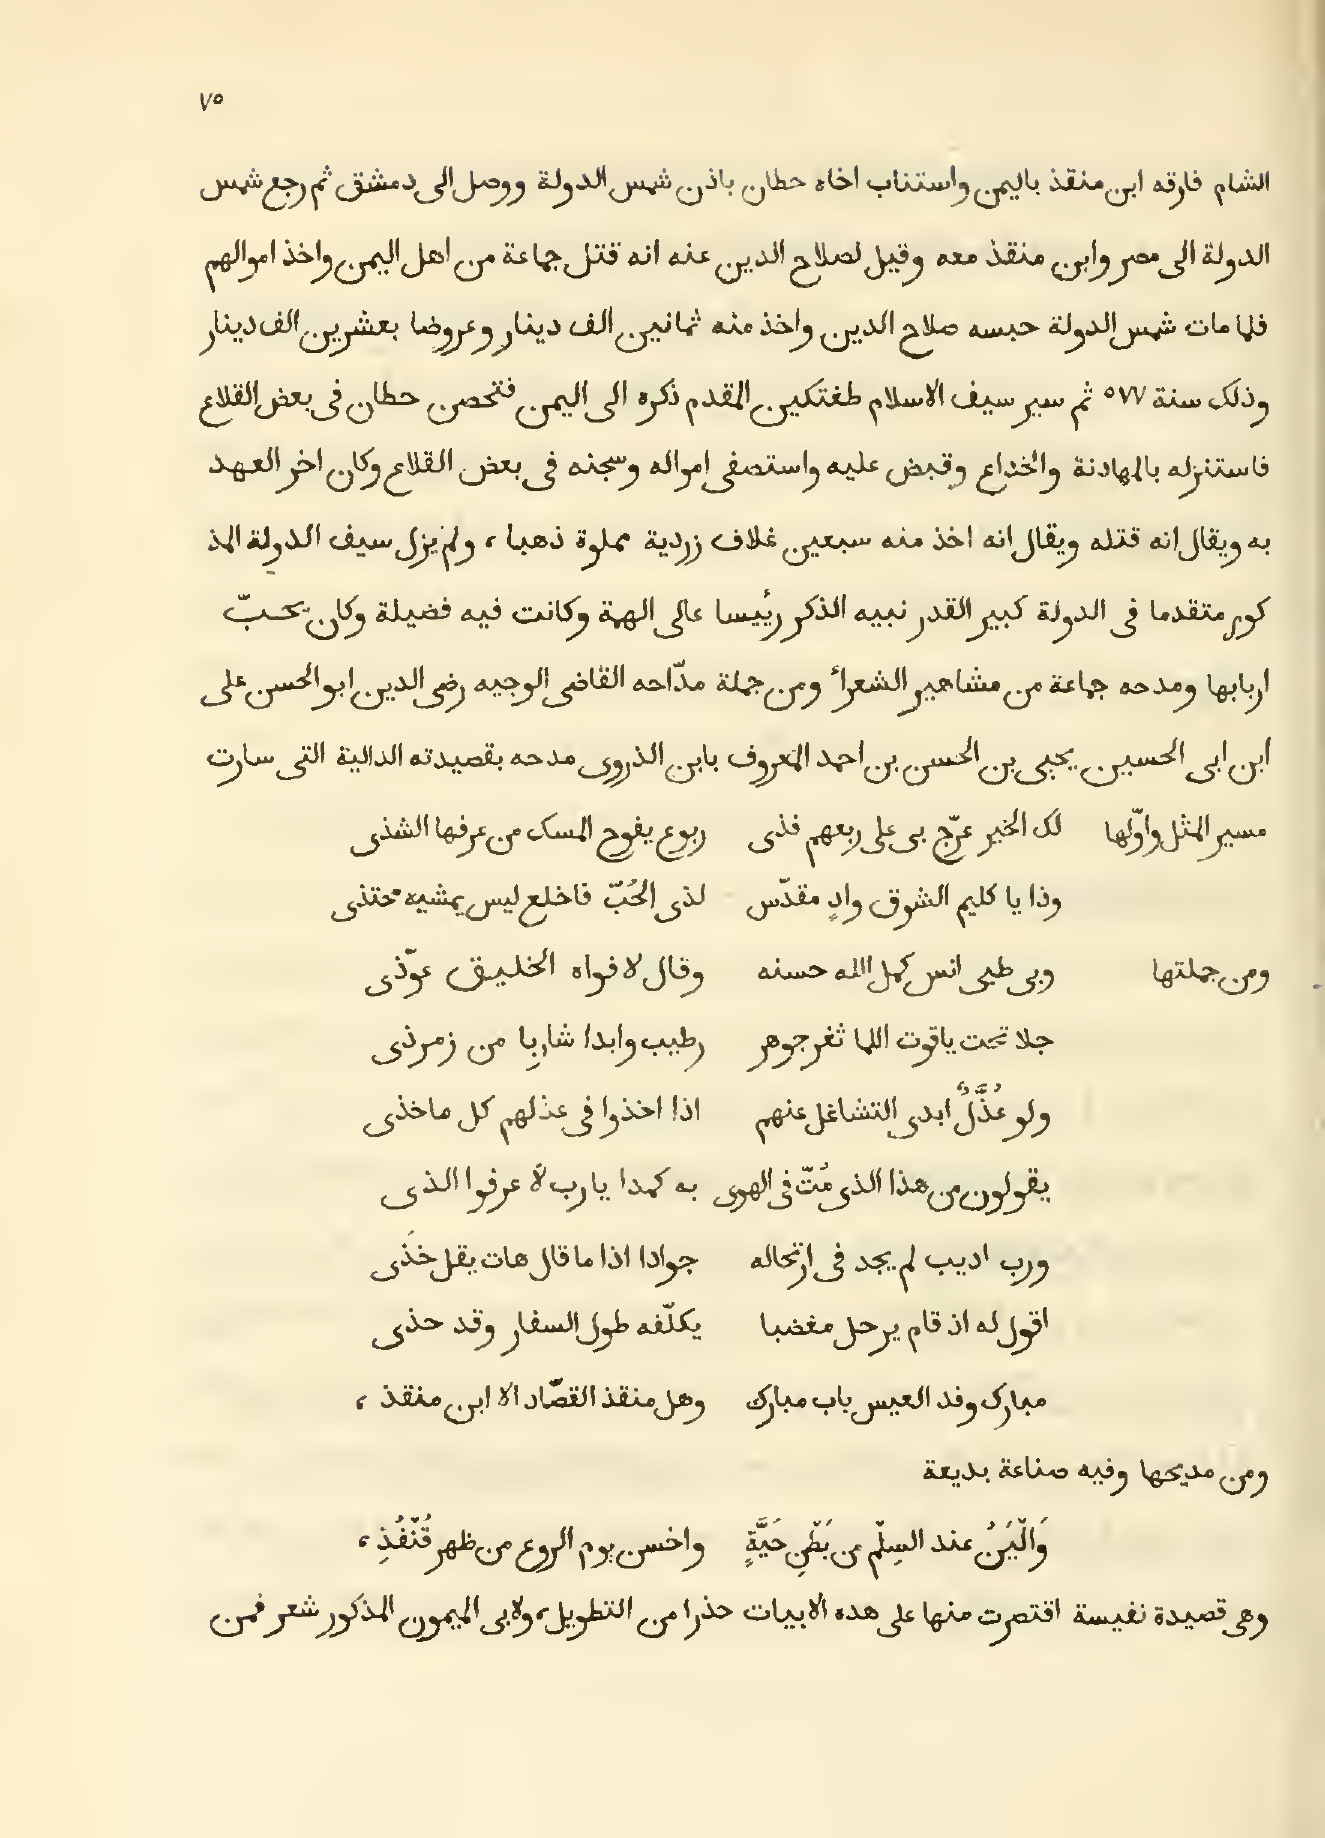 ٧٥
الشام فارقه ابن منقذ باليمن واستناب اخاه حطان باذن شمس الدولة ووصل الى دمشق ثم رجع شمس
الدولة الى مصر وابن منقذ معه وقيل لصلاح الدين عنه انه قتل جماعة من اهل اليمن واخذ اموالهم
فلما مات شمس الدولة حبسه صلاح الدين واخذ منه ثمانين الف دينار وعروضا بعشرين الف دينار
وذلك سنة ٥٧٧ ثم سير سيف الاسلام طغتكين المقدم ذكره الى اليمن فتحصن حطان فى بعض القلاع
فاستنزله بالمهادنة والخداع وقبض عليه واستصفى امواله وسجنه فى بعض القلاع وكان اخر العهد
به ويقال انه قتله ويقال انه اخذ منه سبعين غلاف زردية مملوة ذهبا ، ولم يزل سيف الدولة المذ
كور متقدما فى الدولة كبير القدر نبيه الذكر رئيسا عالى الهمة وكانت فيه فضيلة وكان يحبّ
اربابها ومدحه جماعة من مشاهير الشعراء ومن جملة مدّاحه القاضى الوجيه رضى الدين ابو الحسن على
ابن ابى الحسين يحيى بن الحسن بن احمد المعروف بابن الذروى مدحه بقصيدته الدالية التى سارت
مسير المثل واوّلها لك الخير عرّج بى على ربعهم فذى ربوع يفوح المسك من عرفها الشذى
وذا يا كليم الشوق وادٍ مقدّس لذى الحُبّ فاخلع ليس يمشيه محتذى
ومن جملتها وبى ظبى انس كمل الله حسنه وقال لافواه الخليق عوّذى
جلا تحت ياقوت اللما ثغر جوهر رطيب وابدا شاربِا من زمرذى
ولو عُذّلٌ ابدى التشاغل عنهم اذا اخذوا فى عذلهم كل ماخذى
يقولون من هذا الذى مُتّ فى الهوى به كمدا يا رب لا عرفوا الذى
ورب اديب لم يجد فى ارتحاله جوادا اذا ما قال هات يقل خَذى
اقول له اذ قام يرحل مغضبا يكلّفه طول السفار وقد حذى
مبارك وفد العيس باب مبارك وهل منقذ القصّاد الا ابن منقذ ،
ومن مديحها وفيه صناعة بديعة
وَالْيَنُ عند السِلّم من بَطْنِ حَيَّةٍ واخسن يوم الروع من ظهر قُنْفُذِ ،
وهى قصيدة نفيسة اقتصرت منها على هده الابيات حذرا من التطويل ، ولابى الميمون المذكور شعر فمن